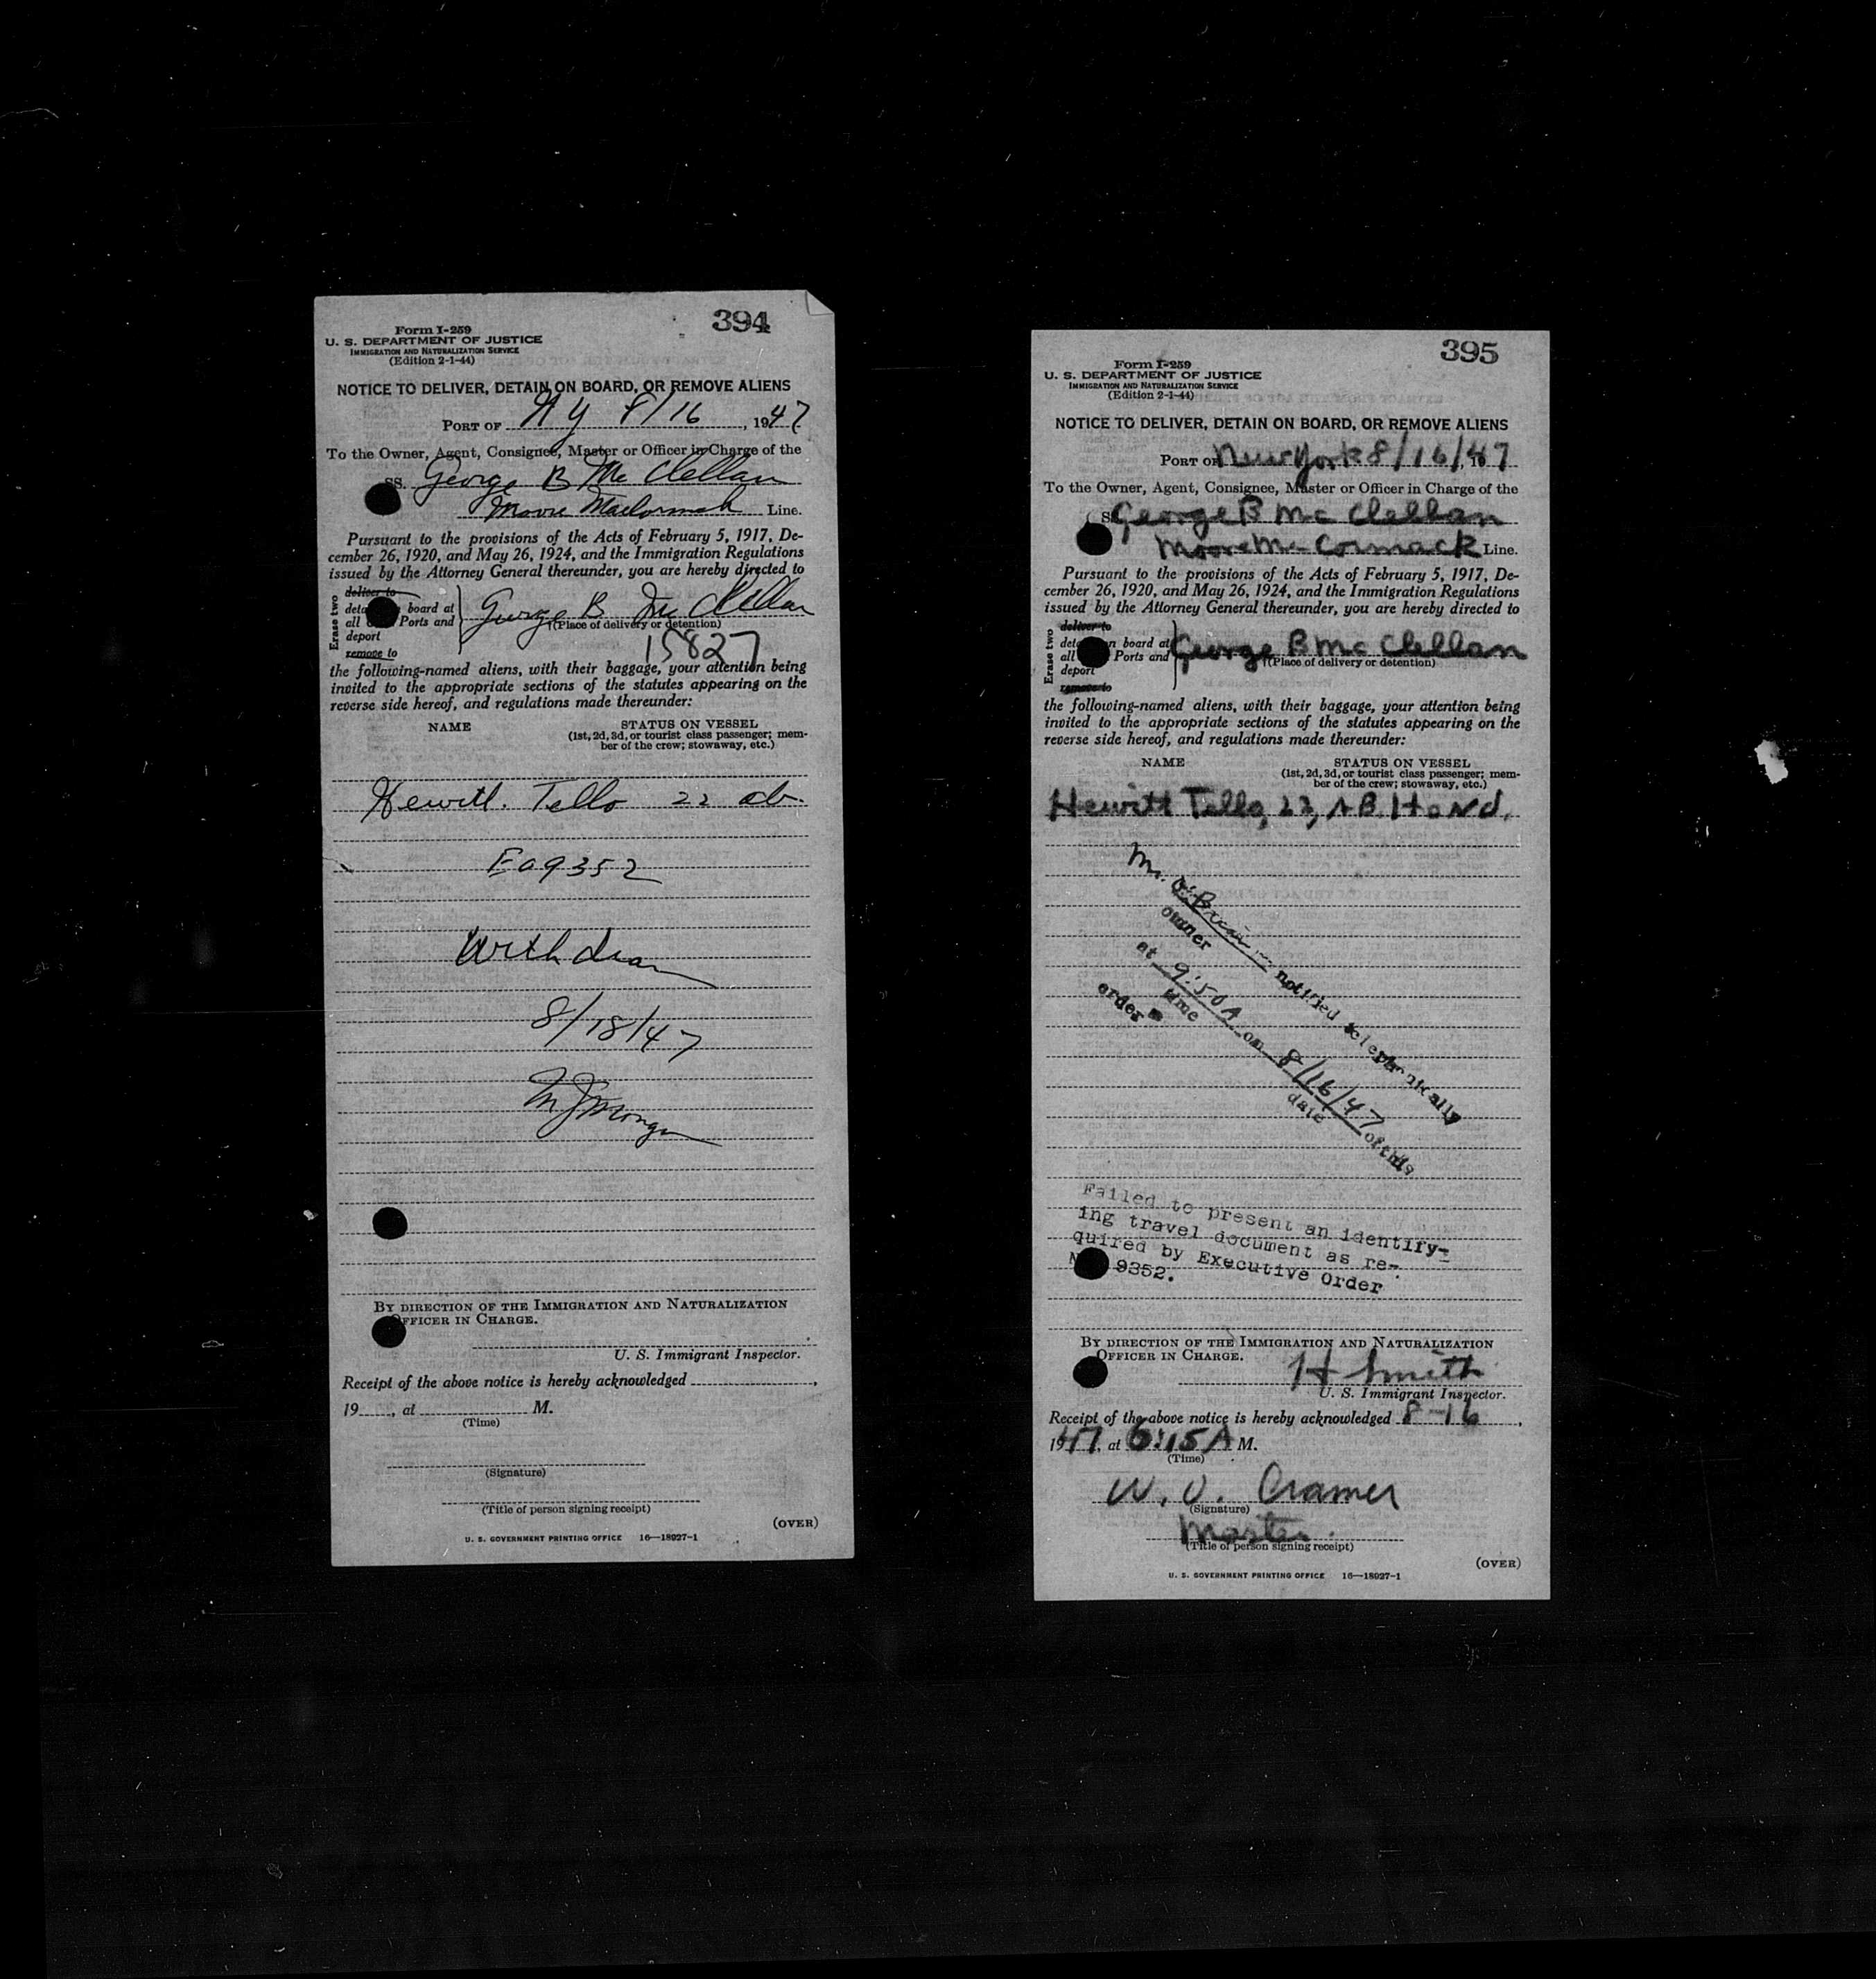 394
Form I-259
U. S. DEPARTMENT OF JUSTICE
IMMIGRATION AND NATURALIZATION SERVICE
(Edition 2-1-44)
NOTICE TO DELIVER, DETAIN ON BOARD, OR REMOVE ALIENS
PORT OF N Y 8/16, 1947
To the Owner, Agent, Consignee, Master or Officer in Charge of the
SS. George B Mc Clellan
Moore Line.
Pursuant to the provisions of the Acts of February 5, 1917, De-
cember 26, 1920, and May 26, 1924, and the Immigration Regulations
issued by the Attorney General thereunder, you are hereby directed to
Erase two
deliver to
board at
all Ports and
deport
remove to
George B Mc Clellan
(Place of delivery or detention)
15827
the following-named aliens, with their baggage, your attention being
invited to the appropriate sections of the statutes appearing on the
reverse side hereof, and regulations made thereunder:
NAME STATUS ON VESSEL
(1st, 2d, 3d, or tourist class passenger; mem-
ber of the crew; stowaway, etc.)
Hewitt. Tello 22 ab.
E09352
Withdrawn
8/18/47
BY DIRECTION OF THE IMMIGRATION AND NATURALIZATION
OFFICER IN CHARGE.
U. S. Immigrant Inspector.
Receipt of the above notice is hereby acknowledged ,
19 , at M.
(Time)
(Signature)
(Title of person signing receipt)
(OVER)
U. S. GOVERNMENT PRINTING OFFICE 16—18027-1
395
Form I-259
U. S. DEPARTMENT OF JUSTICE
IMMIGRATION AND NATURALIZATION SERVICE
(Edition 2-1-44)
NOTICE TO DELIVER, DETAIN ON BOARD, OR REMOVE ALIENS
PORT OF New York 8/16/, 1947
To the Owner, Agent, Consignee, Master or Officer in Charge of the
SS George B Mc Clellan
Moore Mc Cormack Line.
Pursuant to the provisions of the Acts of February 5, 1917, De-
cember 26, 1920, and May 26, 1924, and the Immigration Regulations
issued by the Attorney General thereunder, you are hereby directed to
Erase two
deliver to
board at
all Ports and
deport
remove to
George B Mc Clellan
(Place of delivery or detention)
the following-named aliens, with their baggage, your attention being
invited to the appropriate sections of the statutes appearing on the
reverse side hereof, and regulations made thereunder:
NAME STATUS ON VESSEL
(1st, 2d, 3d, or tourist class passenger; mem-
ber of the crew; stowaway, etc.)
Hewitt Tello, 22, AB. Hond.
Mr. O'Brien notified telephonically
owner
at 9:50A on 8/16/47 of this
time date
order
Failed to present an identify-
ing travel document as re-
quired by Executive Order
9352.
BY DIRECTION OF THE IMMIGRATION AND NATURALIZATION
OFFICER IN CHARGE.
H Smith
U. S. Immigrant Inspector.
Receipt of the above notice is hereby acknowledged 8-16,
1947, at 6:15 A M.
(Time)
W. O. Cramer
(Signature)
Master.
(Title of person signing receipt)
(OVER)
U. S. GOVERNMENT PRINTING OFFICE 16—18027-1